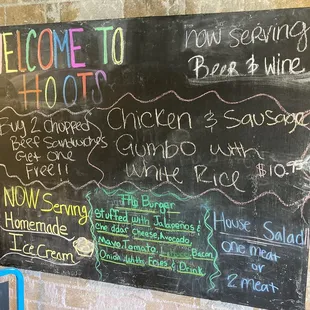 WELCOME TO
HOOTS
now serving
Beer & Wine
Buy 2 chopped
Beef Sandwiches
Get one
Free!!
Chicken & Sausage
Gumbo with
White Rice $10.75
NOW Serving
Homemade
Ice Cream
Burger
Stuffed with Jalapeños &
cheddar cheese, Avocado,
Mayo, Tomato, Bacon
Onion with Fries & Drink
House Salad
one meat
or
2 meat